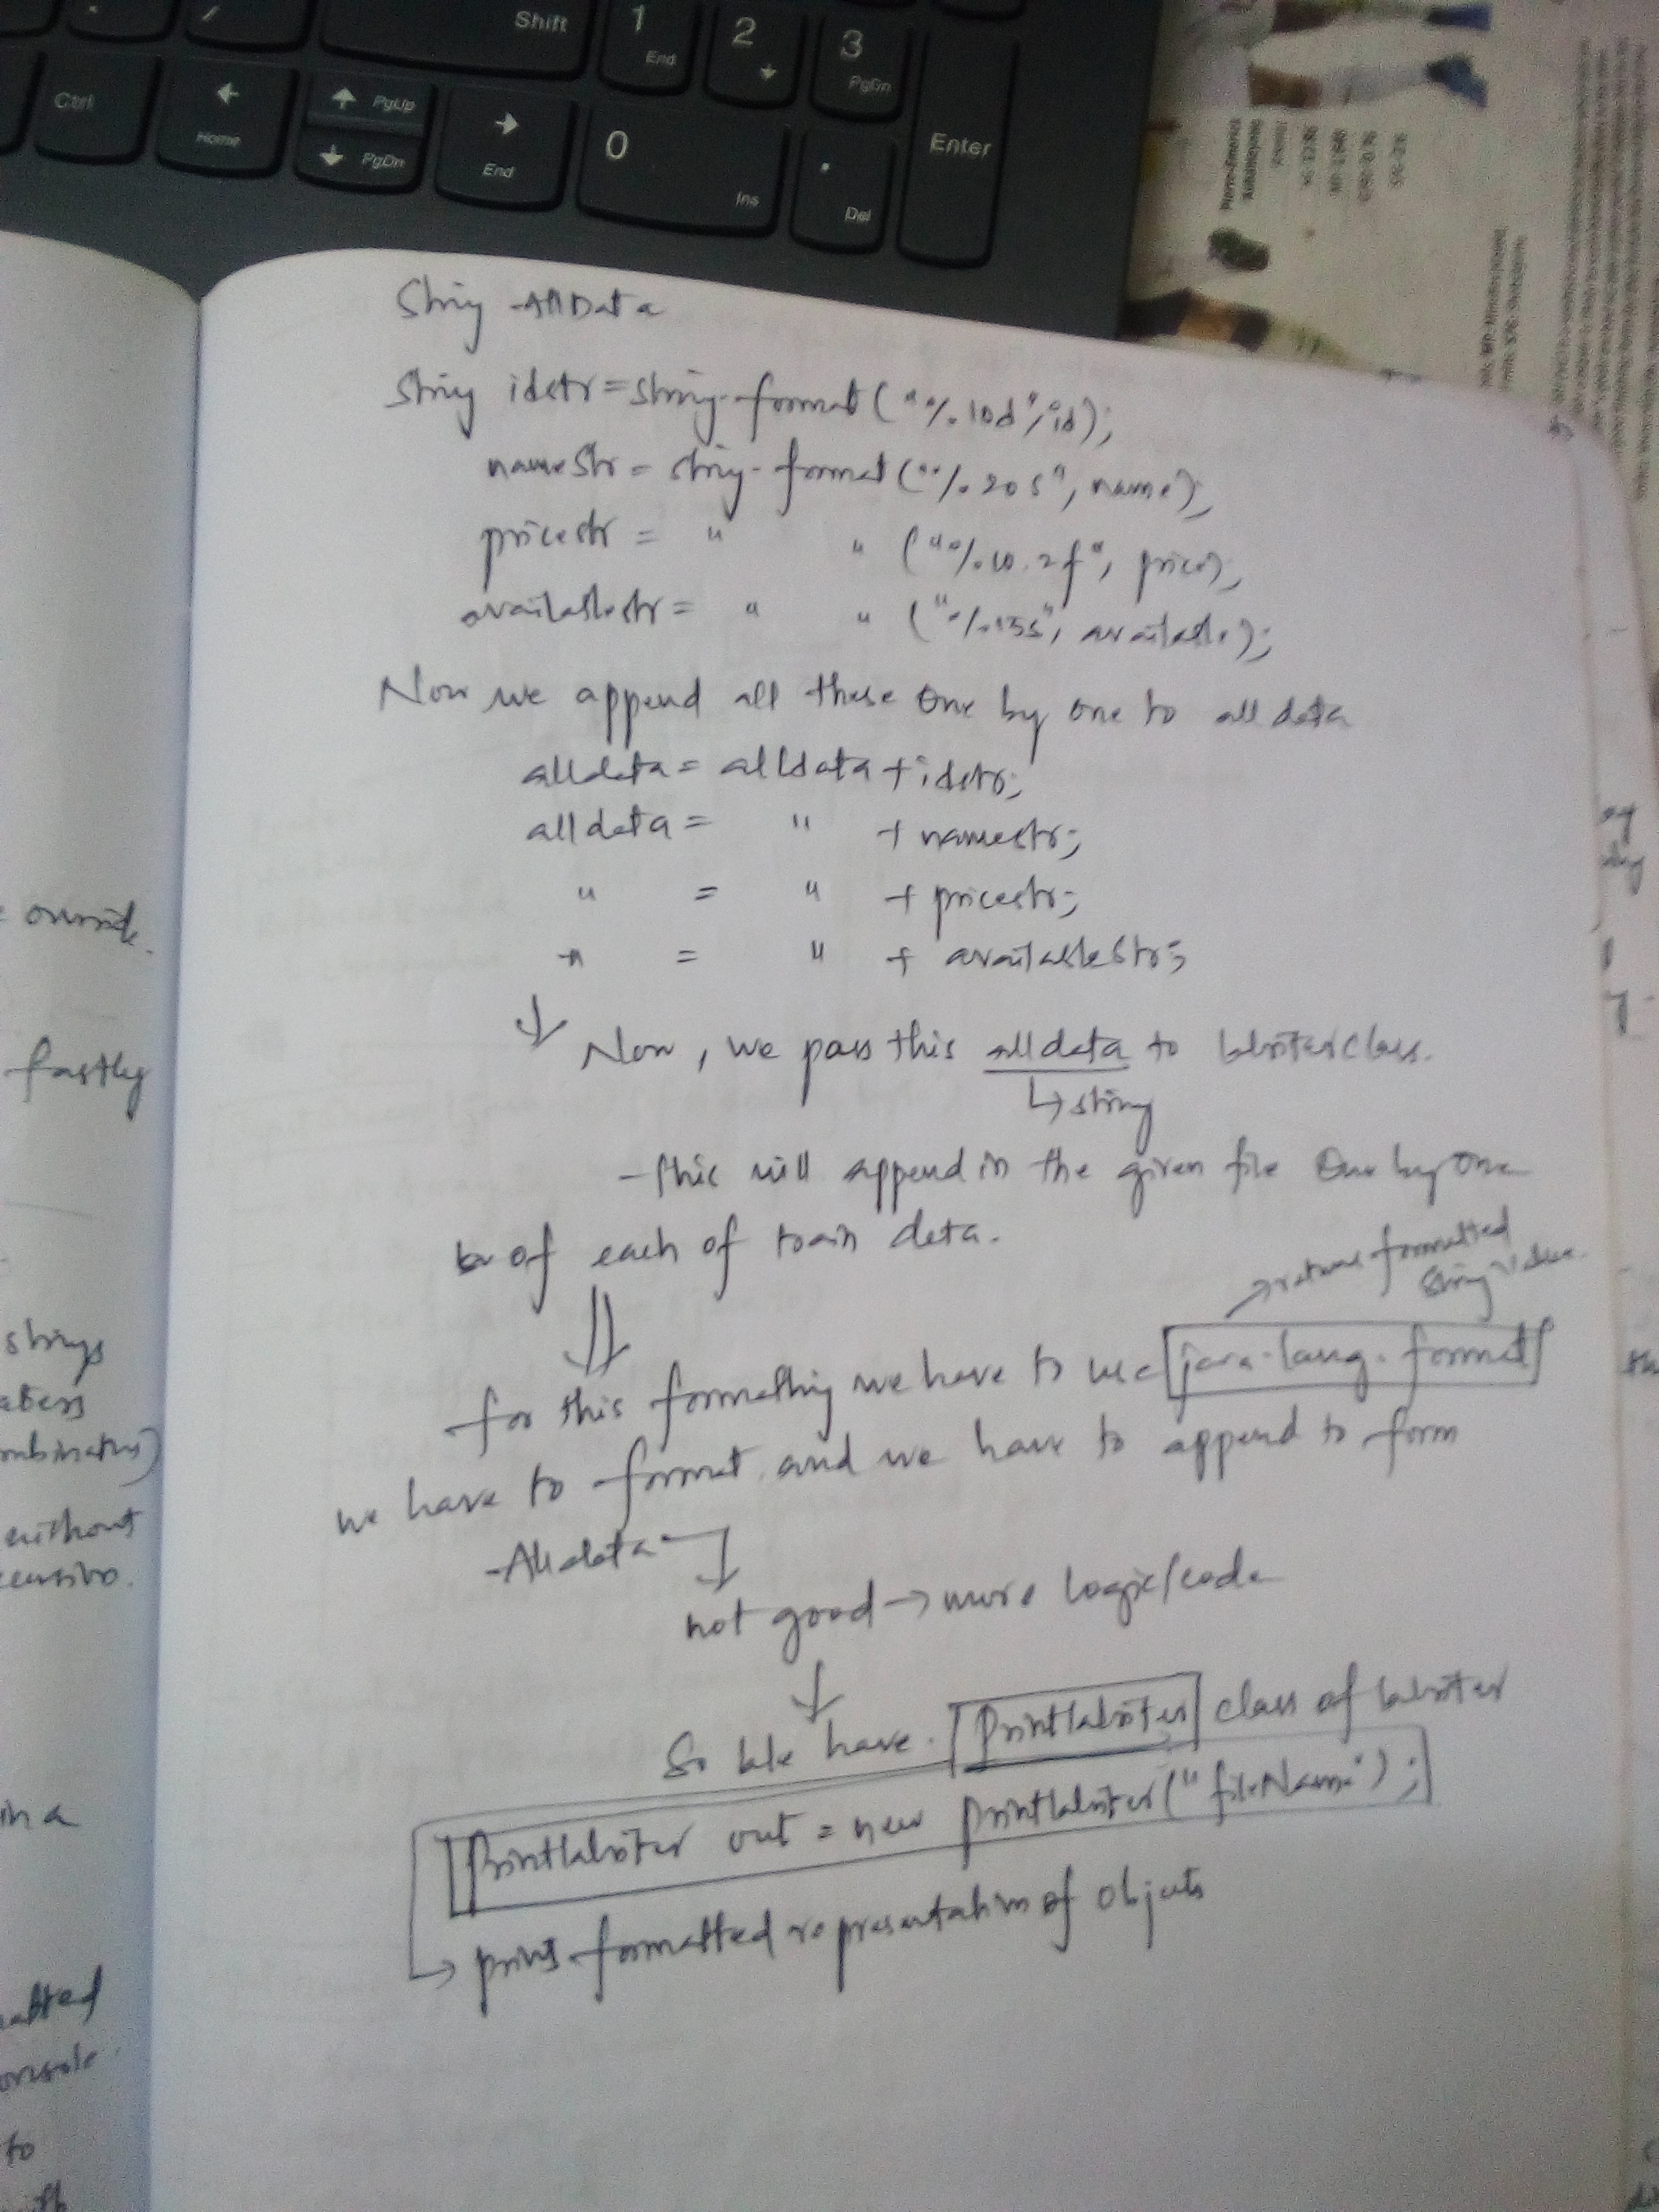 Shift
1 End
2
3 PgDn
Ctrl
Home
PgUp
PgDn
End
0 Ins
. Del
Enter
String AllData
String idstr = string.format("%10d", id);
nameStr = string.format("%20s", name);
pricestr = " " ("%10.2f", price);
availablestr = " " ("%15s", available);
Now we append all these One by one to all data
alldata = alldata + idstr;
alldata = " + namestr;
" = " + pricestr;
" = " + availableStr;
↓ Now, we pass this alldata to Writer class.
↳ string
- this will append in the given file One by One
of each of train data.
→ returns formatted
String value.
⇓
for this formatting we have to use java.lang.format
we have to format and we have to append to form
All data
↓
not good → more logic/code
↓
So We have PrintWriter class of Writer
PrintWriter out = new PrintWriter("fileName");
→ prints formatted representation of objects
override.
fastly
strings
without
in a
to